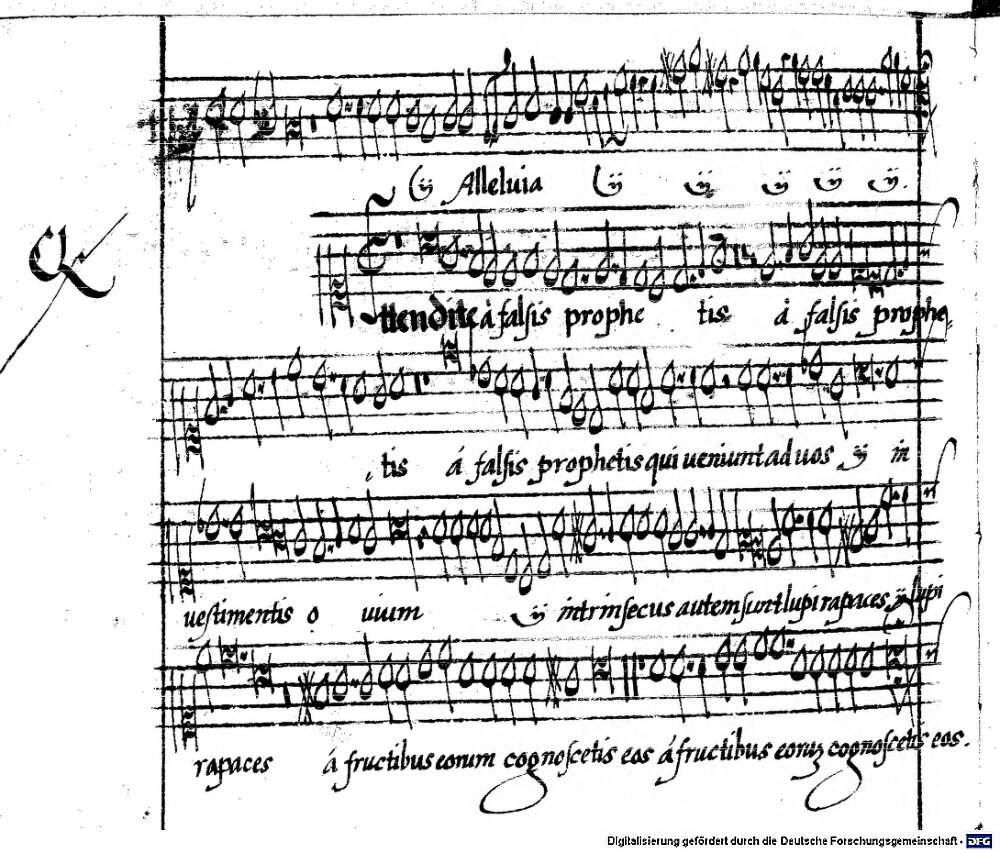 ij Alleluia ij ij ij ij ij.
Attendite á falsis prophe tis á falsis prophe,
tis á falsis prophetis qui ueniunt ad uos ij in
uestimentis o uium ij intrinsecus autem sunt lupi rapaces ij lupi
rapaces á fructibus eorum cognoscetis eos á fructibus eorum cognoscetis eos.
Digitalisierung gefördert durch die Deutsche Forschungsgemeinschaft - DFG